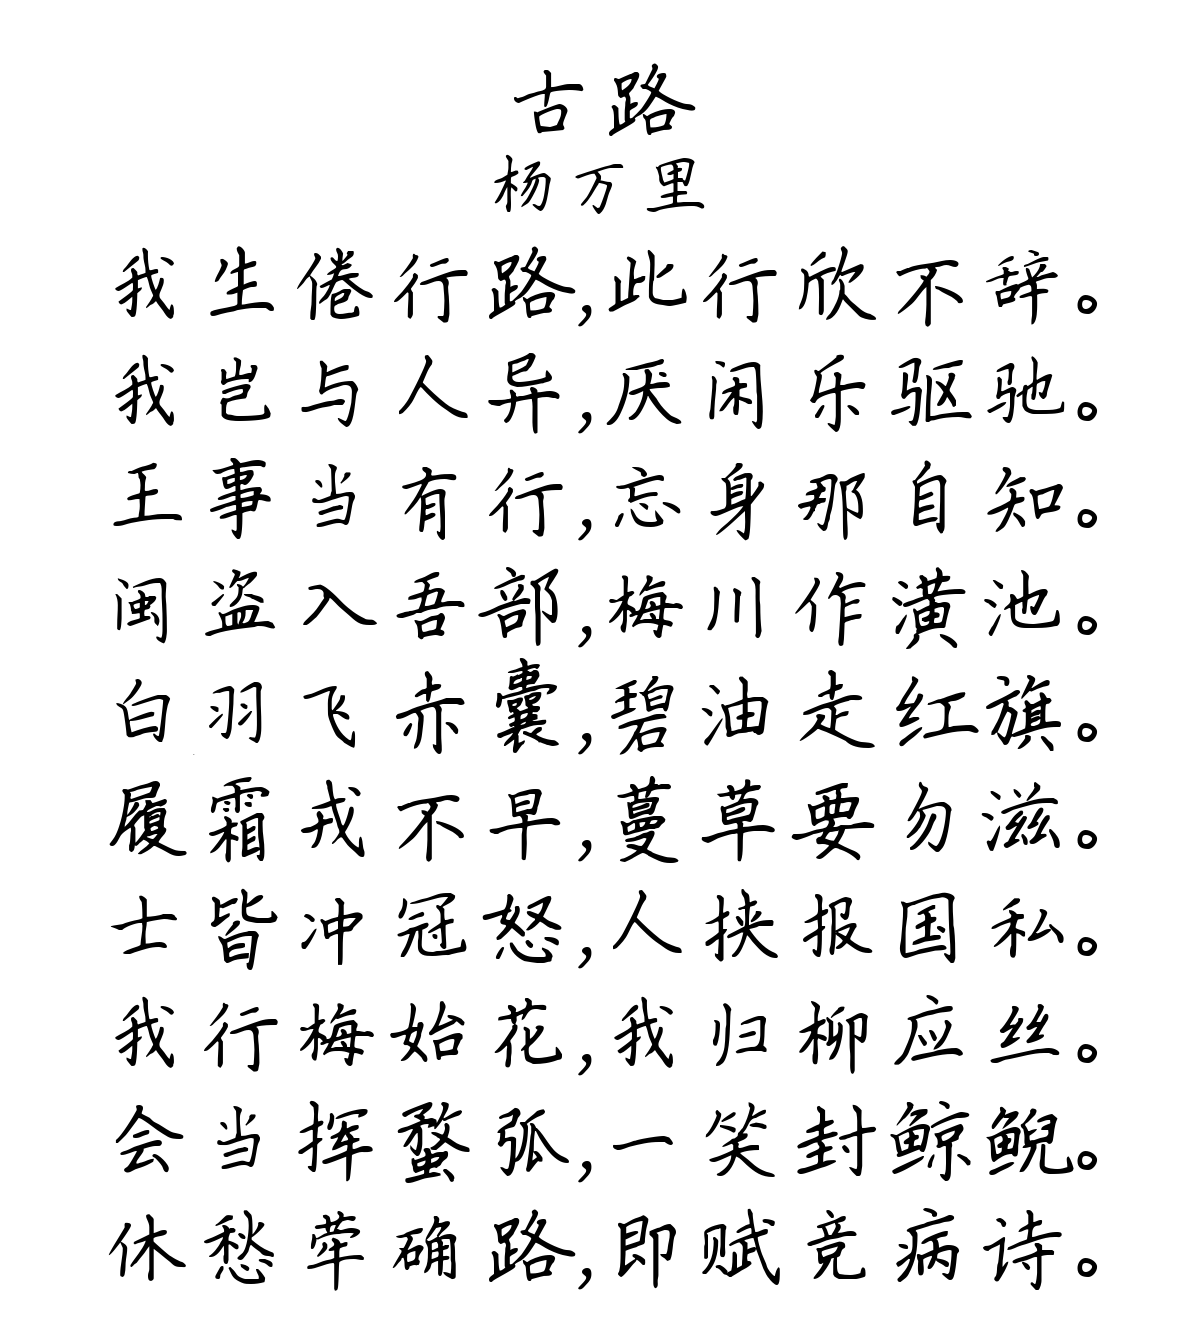 古路
杨万里
我生倦行路,此行欣不辞。
我岂与人异,厌闲乐驱驰。
王事当有行,忘身那自知。
闽盗入吾部,梅川作潢池。
白羽飞赤囊,碧油走红旗。
履霜戎不早,蔓草要勿滋。
士皆冲冠怒,人挟报国私。
我行梅始花,我归柳应丝。
会当挥蝥弧,一笑封鲸鲵。
休愁荦确路,即赋竞病诗。